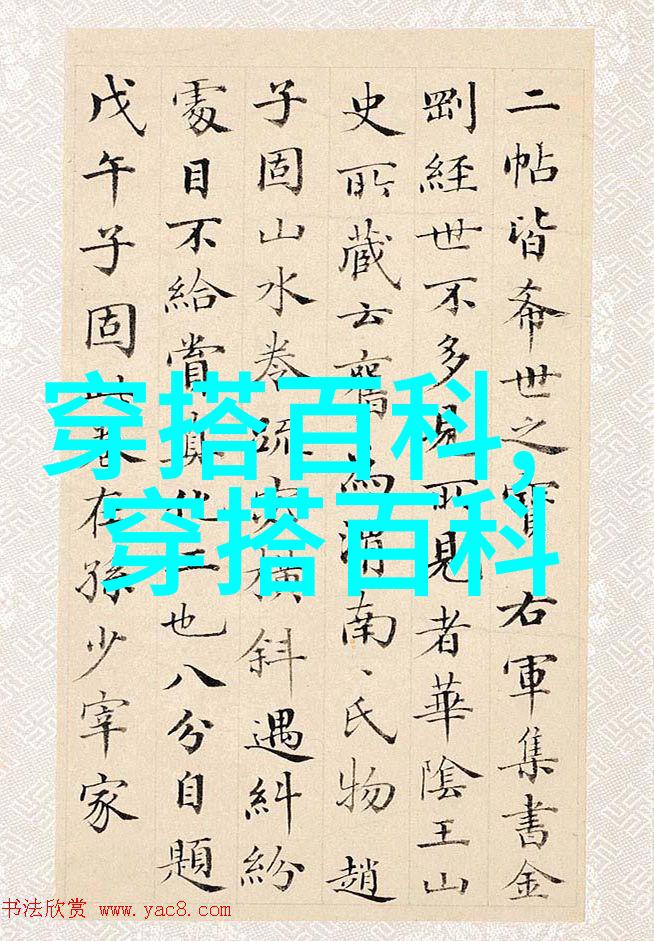 二帖皆希世之寶右軍集書金
剛經世不多見所見者華陰王山
史所藏云舊為渭南、氏物趙
子固山水卷疏密橫斜遇糾紛
處目不給賞真二也八分自題
戊午子固此卷在孫少宰家
穿搭百科,
穿搭百科
书法欣赏 www.yac8.com